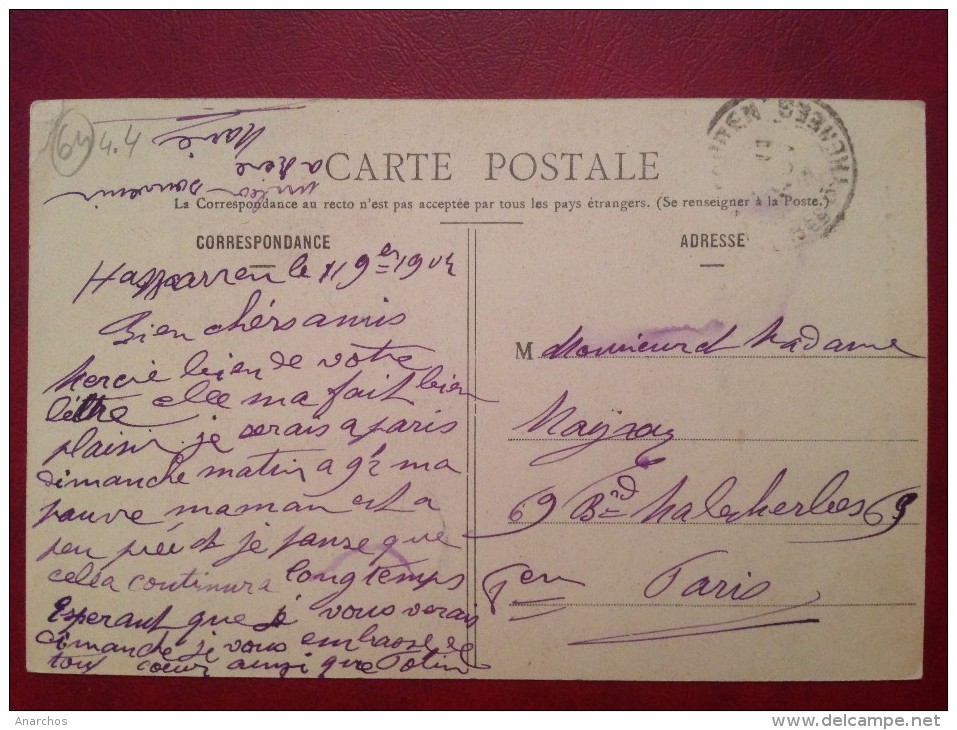 64
4.4
CARTE POSTALE
La Correspondance au recto n'est pas acceptée par tous les pays étrangers. (Se renseigner à la Poste.)
CORRESPONDANCE
Hasparren le 11 9er 1904
Bien chérs amis
Mercie bien de votre
lettre elle ma fait bien
plaisir je serais a paris
dimanche matin a 9h ma
pauvre maman est a
peu prés et je panse que
celéa continura longtemps
Esperant que je vous verais
dimanche je vous embrasse de
tout cœur ainsi que
Marie
souvenir
ADRESSE
M Monsieur et Madame
69 Bd Malesherbes 69
Paris
Anarchos
delcampe.net